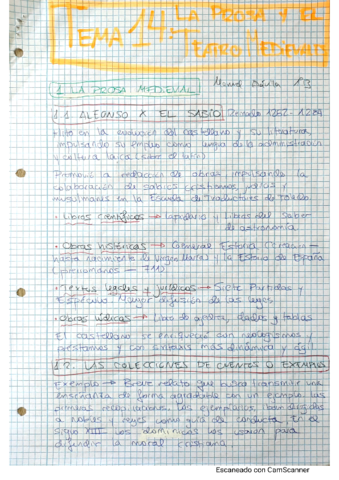 TEMA 14: LA PROSA Y EL
TEATRO MEDIEVAL
1. LA PROSA MEDIEVAL
1.1 ALFONSO X EL SABIO Reinado 1252-1284
Hito en la evolución del castellano y su literatura,
impulsando su empleo como lengua de la administración
y cultura laica (sobre el latín)
Promovió la redacción de obras, impulsando la
colaboración de sabios cristianos, judíos y
musulmanes en la Escuela de Traductores de Toledo.
· Libros científicos → Lapidario y Libros del Saber
de astronomía
· Obras históricas → General Estoria (
hasta nacimiento de Virgen María) y la Estoria de España
· Textos legales y jurídicos → Siete Partidas y
Espéculo. Mayor difusión de las leyes
· Obras lúdicas → Libro de ajedrez, dados y tablas
El castellano se enriqueció con neologismos y
préstamos y con sintaxis más dinámica y ágil
1.2. LAS COLECCIONES DE CUENTOS O EXEMPLOS
Exemplo → Breve relato que busca transmitir una
enseñanza de forma agradable con un ejemplo, las
primeras recopilaciones, los ejemplarios, iban dirigidas
a nobles y reyes como guía de conducta. En el
siglo XIII los dominicos los usaron para
difundir la moral cristiana.
Escaneado con CamScanner